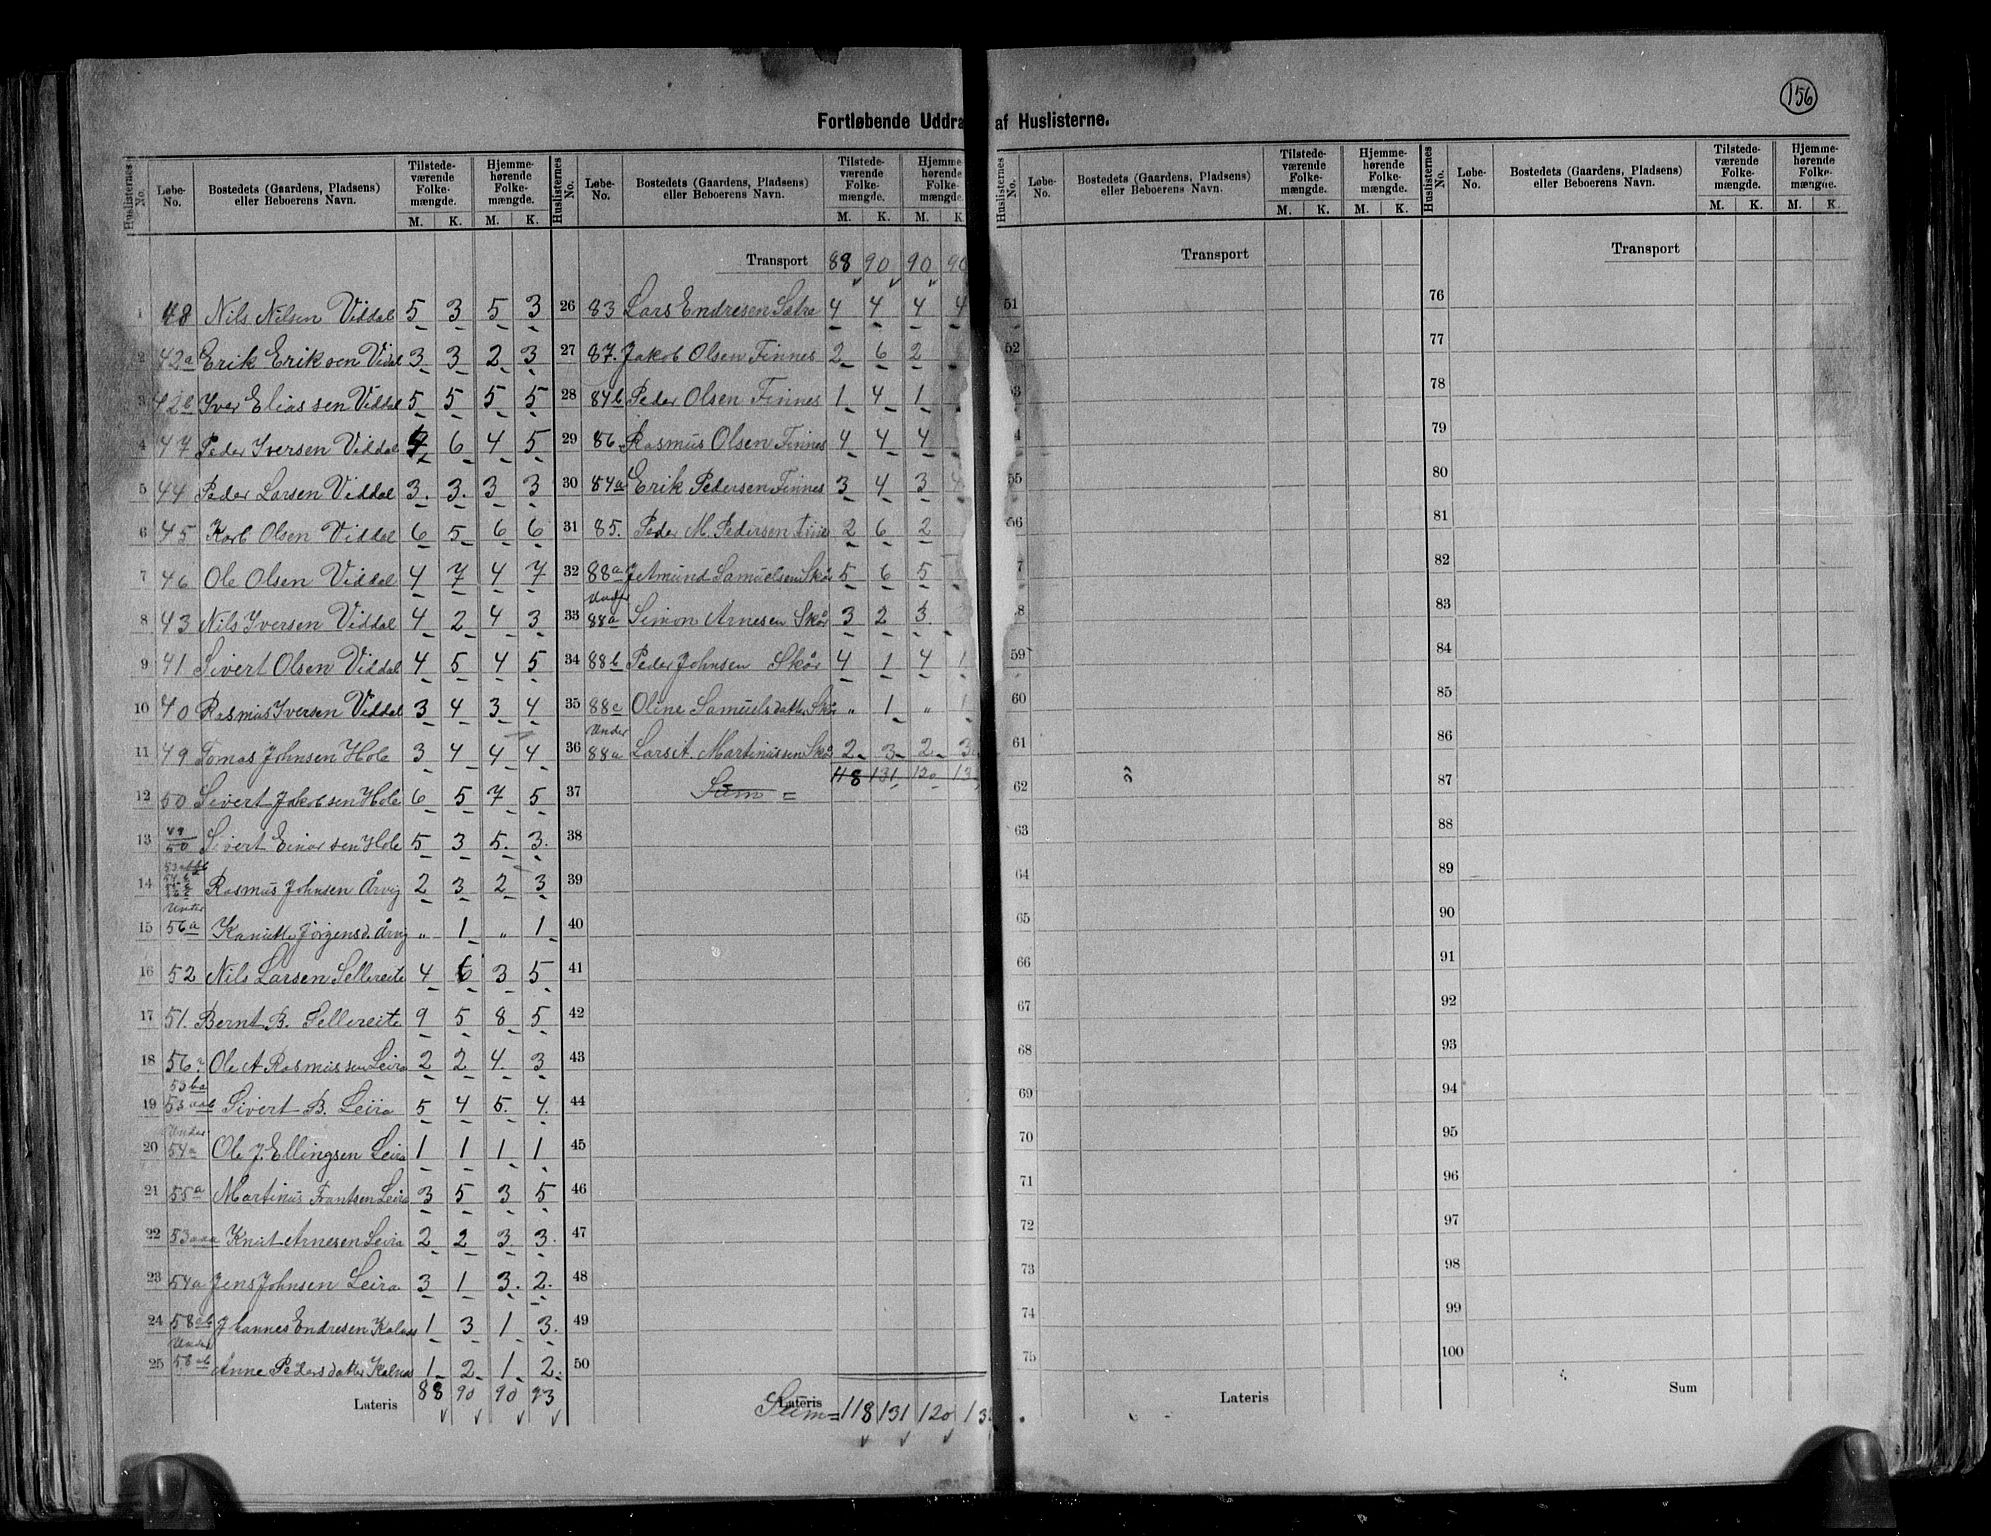 156
Fortløbende Uddra af Huslisterne.
Huslisternes No. Løbe-No. Bostedets (Gaardens, Pladsens) eller Beboerens Navn. Tilstede-værende Folke-mængde. M. K. Hjemme-hørende Folke-mængde. M. K.
1 48 Nils Nilsen Viddal 5 3 5 3
2 42a Erik Eriksen Vidal 3 3 2 3
3 Iver Eliassen Viddal 5 5 5 5
4 47 Peder Iversen Viddal 6 4 5
5 44 Peder Larsen Viddal 3. 3. 3 3
6 45 Karl Olsen Viddal 6 5 6 6
7 46 Ole Olsen Viddal 4 7 4 7
8 43 Nils Iversen Viddal 4 2 4 3
9 41 Sivert Olsen Viddal 4 5 4 5
10 40 Rasmus Iversen Viddal 3 4 3 4
11 49 Tomas Johnsen Hole 3 4 4 4
12 50 Sivert Jakobsen Hole 6 5 7 5
13 49/50 Sivert Einarsen Hole 5 3 5. 3.
14 Rasmus Johnsen Årvig 2 3 2 3
Under
15 56a Jørgensd. Årvig „ 1 „ 1
16 52 Nils Larsen Sellereite 4 6 3 5
17 51. Bernt B. Sellereite 9 5 8 5
18 56 Ole A Rasmussen Leira 2 2 4. 3
53ba
19 53aab Sivert B. Leira 5 4 5. 4.
Under
20 54a Ole J. Ellingsen Leira 1 1 1 1
21 55a Martinus Frantsen Leira 3 5 3 5
22 53aaa Knut Arnesen Leira 2 2 3 3.
23 54a Jens Johnsen Leira 3 1 3. 2.
24 58ab Johannes Endresen Kalnæs 1 3 1 3.
Under
25 58ab Anne Pedersdatter Kalnæs 1 2 1 2.
Lateris 88 90 90 93
Huslisternes No. Løbe-No. Bostedets (Gaardens, Pladsens) eller Beboerens Navn. Tilstede-værende Folke-mængde. M. K. Hjemme-hørende Folke-mængde. M. K
Transport 88 90 90 90
26 83 Lars Endresen Sætra 4 4 4 4
27 87. Jakob Olsen Finnes 2 6 2
28 84b Peder Olsen Finnes 1 4 1
29 86 Rasmus Olsen Finnes 4 4 4
30 84a Erik Pedersen Finnes 3 4 3 4
31 85. Peder M. Pedersen 2 6 2
32 88a Jetmund Samuelsen Skår 5 6 5
Under
33 88a Simon Arnesen Skår 3 2 3.
34 88b Peder Johnsen Skår 4 1 4 1
35 88c Oline Samuelsdatter Skår „ 1 „ 1
Under
36 88a Lars A Martinussen Skår 2 3 2 3
118 131 120 13
37 Sum =
38
39
40
41
42
43
44
45
46
47
48
49
50
Lateris
Sum = 118 131 120 13
Huslisternes No. Løbe-No. Bostedets (Gaardens, Pladsens) eller Beboerens Navn. Tilstede-værende Folke-mængde. M. K. Hjemme-hørende Folke-mængde. M. K.
Transport
51
52
53
4
55
56
7
8
59
60
61
62
63
64
65
66
67
68
69
70
71
72
73
74
75
Lateris
Huslisternes No. Løbe-No. Bostedets (Gaardens, Pladsens) eller Beboerens Navn. Tilstede-værende Folke-mængde. M. K. Hjemme-hørende Folke-mængde. M. K.
Transport
76
77
78
79
80
81
82
83
84
85
86
87
88
89
90
91
92
93
94
95
96
97
98
99
100
Sum